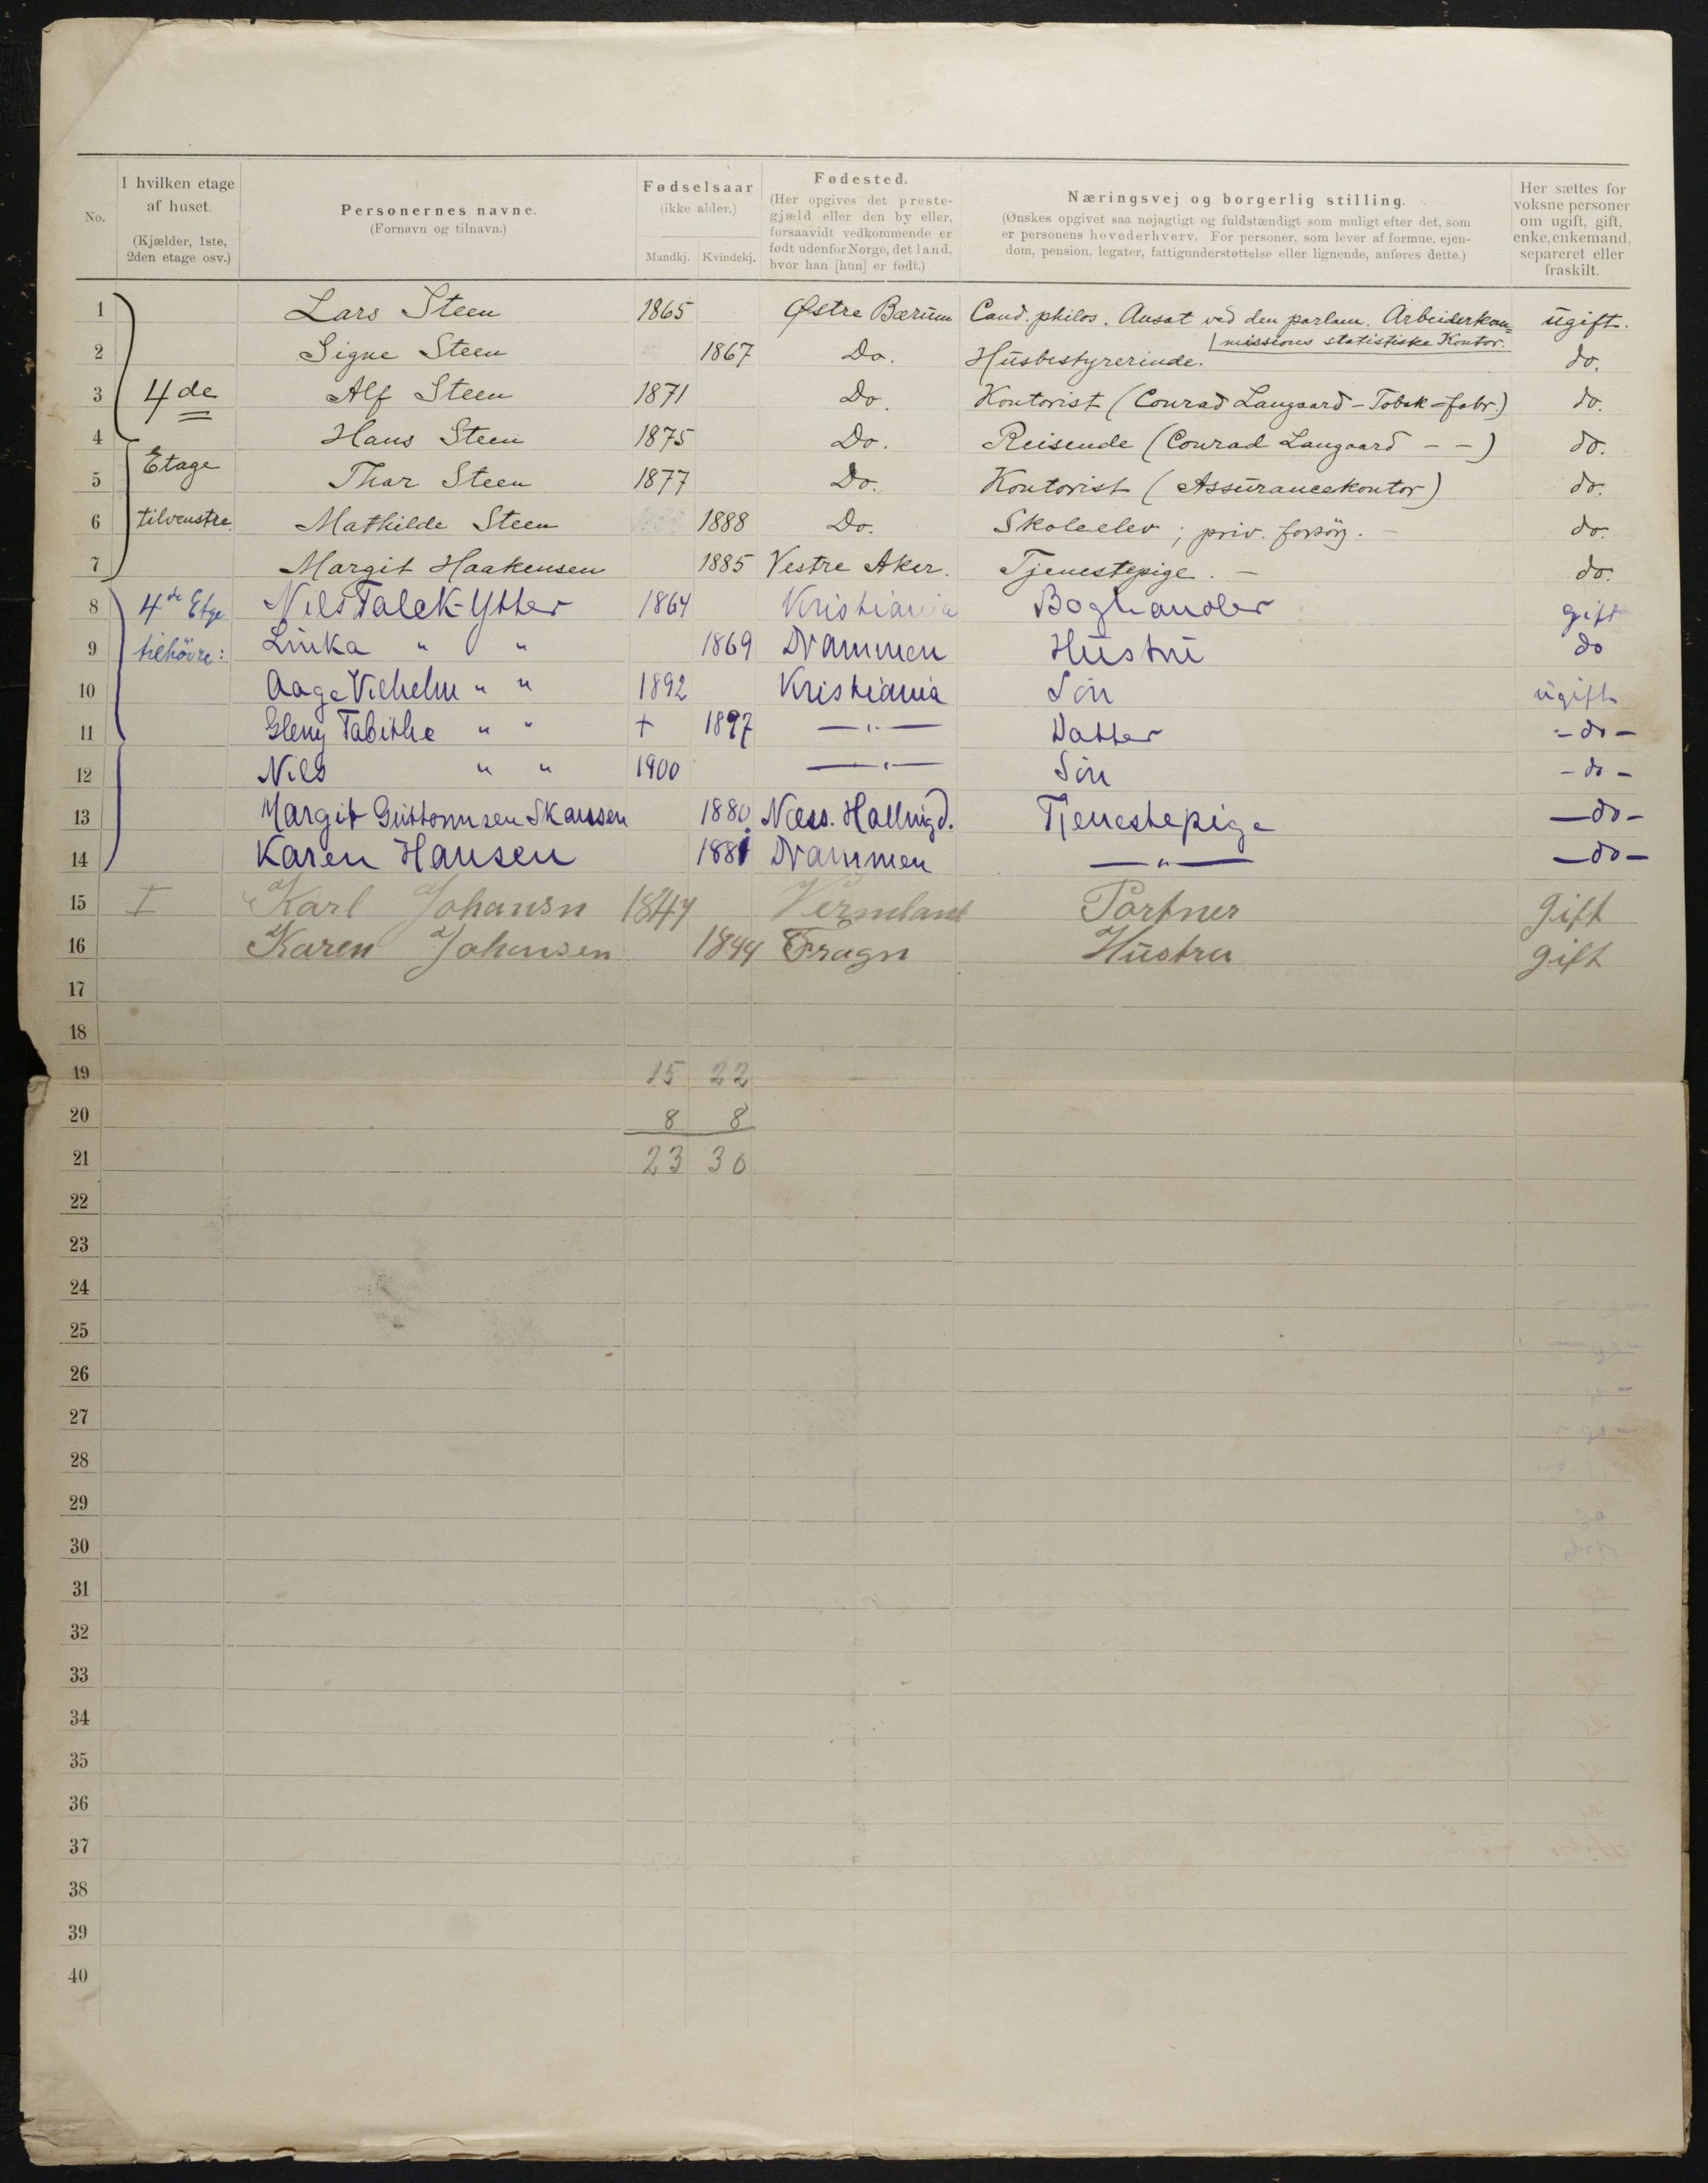 No.
I hvilken etage af huset. (Kjælder, 1ste, 2den etage osv.)
Personernes navne. (Fornavn og tilnavn.)
Fødselsaar (ikke alder.) Mandkj. Kvindekj.
Fødested. (Her opgives det prestegjæld eller den by eller, forsaavidt vedkommende er født udenfor Norge, det land, hvor han [hun] er født.)
Næringsvej og borgerlig stilling. (Ønskes opgivet saa nøjagtigt og fuldstændigt som muligt efter det, som er personens hovederhverv. For personer, som lever af formue, ejendom, pension, legater, fattigunderstøttelse eller lignende, anføres dette.)
Her sættes for voksne personer om ugift, gift, enke, enkemand, separeret eller fraskilt.
1 Lars Steen 1865 Østre Bærum Cand. philos. Ansat ved den parlam. Arbeiderkom=missions statistiske Kontor. ugift.
2 Signe Steen 1867 Do. Husbestyrerinde. do.
3 4de Alf Steen 1871 Do. Kontorist (Conrad Langaard - Tobak=fabr.) do.
4 Hans Steen 1875 Do. Reisende (Conrad Langaard - -) do.
5 Etage Thor Steen 1877 Do. Kontorist (Assurancekontor) do.
6 tilvenstre. Mathilde Steen 1888 Do. Skoleelev; priv. forsörg. - do.
7 Margit Haakensen 1885 Vestre Aker. Tjenestepige. - do.
8 4de Etge Nils Falck-Ytter 1864 Kristiania Boghandler gift
9 tilhöire: Linka " " 1869 Drammen Hustru do
10 Aage Vilhelm " " 1892 Kristiania Sön ugift
11 Gleny Tabithe " " + 1897 — " — Datter - do -
12 Nils " " 1900 — " — Sön - do -
13 Margit Guttormsen Skaussen 1880. Næss. Hallingd. Tjenestepige - do -
14 Karen Hansen 1881 Drammen — " — - do -
15 I Karl Johansn 1847 Vermland Portner Gift
16 Karen Johansen 1844 Frogn Hustru gift
17
18
19 15 22
20 8 8
21 23 30
22
23
24
25
26
27
28
29
30
31
32
33
34
35
36
37
38
39
40